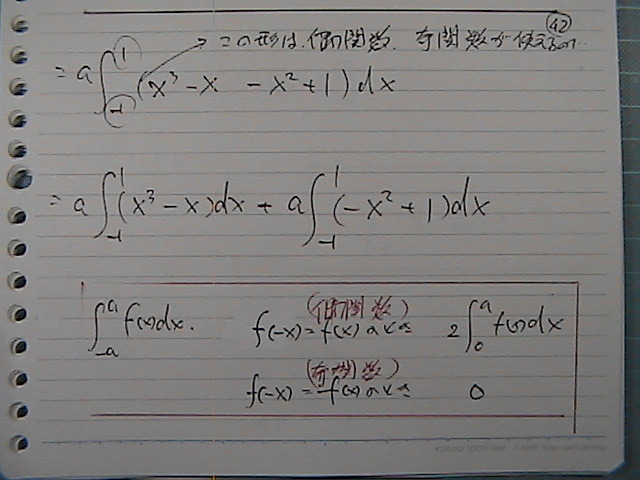 42
この形は、偶関数、奇関数が使える...
= a∫_{-1}^{1} (x³ - x - x² + 1) dx
= a∫_{-1}^{1} (x³ - x)dx + a∫_{-1}^{1} (-x² + 1)dx
(偶関数)
∫_{-a}^{a} f(x)dx. f(-x) = f(x) のとき 2∫_{0}^{a} f(x)dx
(奇関数)
f(-x) = -f(x) のとき 0